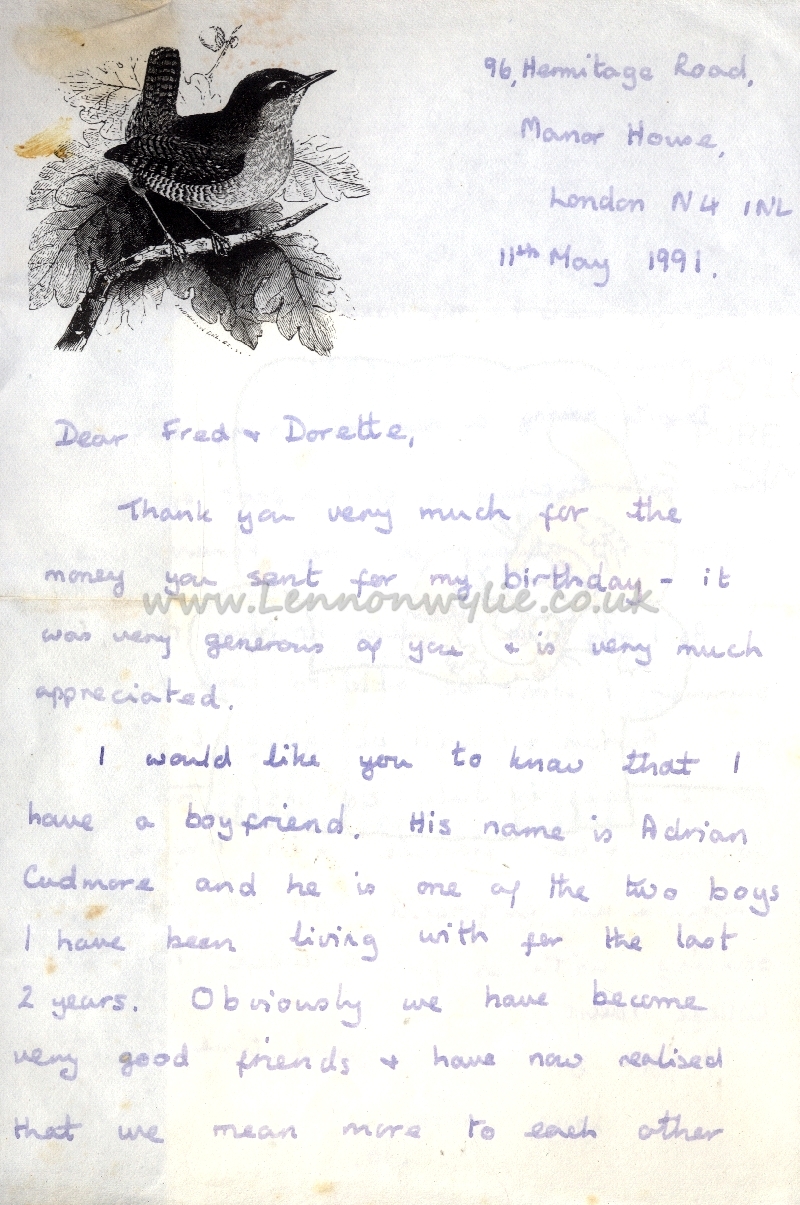 96, Hermitage Road,
Manor House,
London N4 1NL
11th May 1991.
Dear Fred & Dorette,
Thank you very much for the
money you sent for my birthday - it
www.Lennonwylie.co.uk
was very generous of you & is very much
appreciated.
I would like you to know that I
have a boyfriend. His name is Adrian
Cudmore and he is one of the two boys
I have been living with for the last
2 years. Obviously we have become
very good friends & have now realised
that we mean more to each other